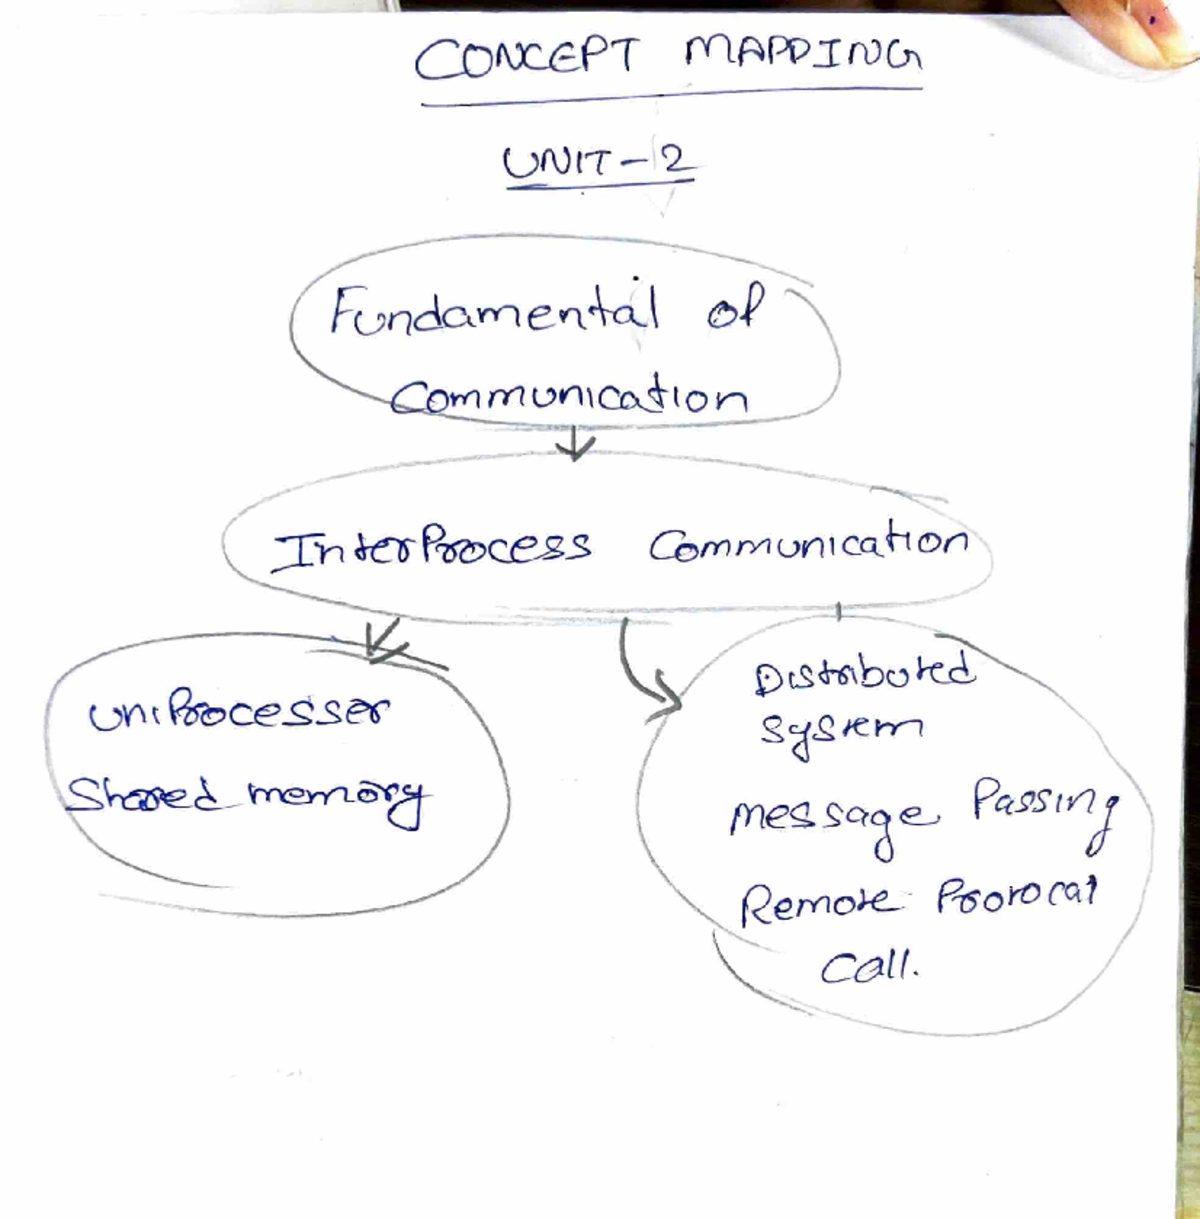 CONCEPT MAPPING
UNIT-2
Fundamental of
Communication
InterProcess Communication
UniProcesser
Shared memory
Distributed
System
message Passing
Remote Prorocal
Call.